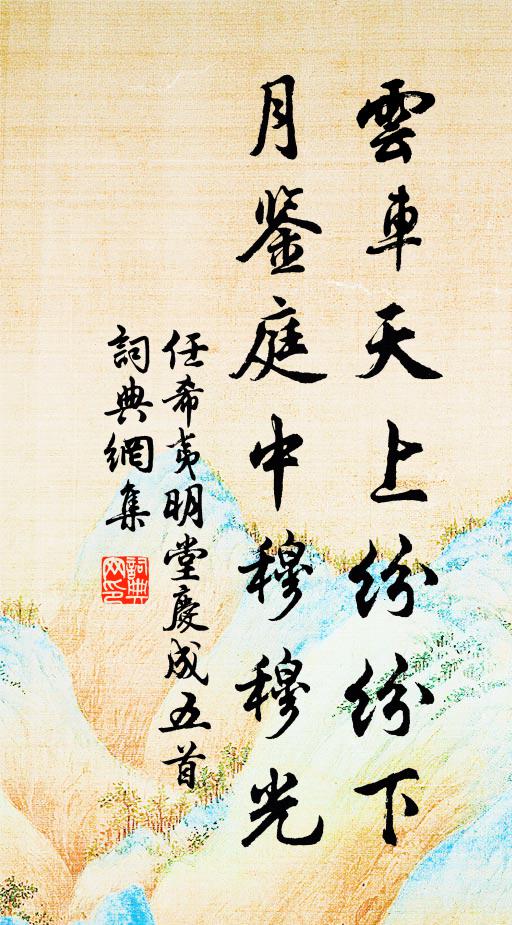 雲車天上紛紛下
月鉴庭中穆穆光
任希夷明堂慶成五首
詞典網集
詞典網印